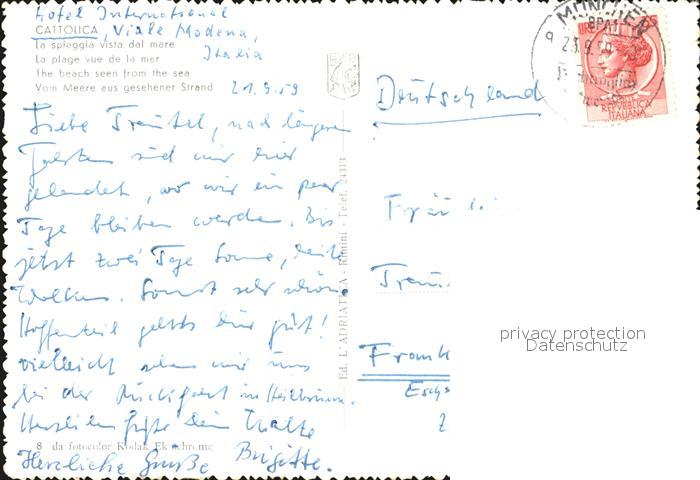 Hotel International
CATTOLICA, Viale Modena,
La spiaggia vista dal mare
Italia
La plage vue de la mer
The beach seen from the sea
Vom Meere aus gesehener Strand
21.9.59
Liebe Traudel, nach längerem
sind wir hier
gelandet, wo wir ein paar
Tage bleiben werden. Bis
jetzt zwei Tage Sonne, heute
Wolken. Sonst sehr schön.
Hoffentlich gehts Dir gut!
Vielleicht sehen wir uns
bei der Rückfahrt in Heilbronn.
Herzliche Grüße Dein
8 da fotocolor Kodak Ektachrome
Herzliche Grüße Brigitte.
Ed. L'ADRIATICA - Rimini - Telef. 24313
MÜNCHEN
9
23.9.59
LIRE
POSTE
REPVBBLICA
ITALIANA
Deutschland
Fräulein
Frank
Esch
privacy protection
Datenschutz